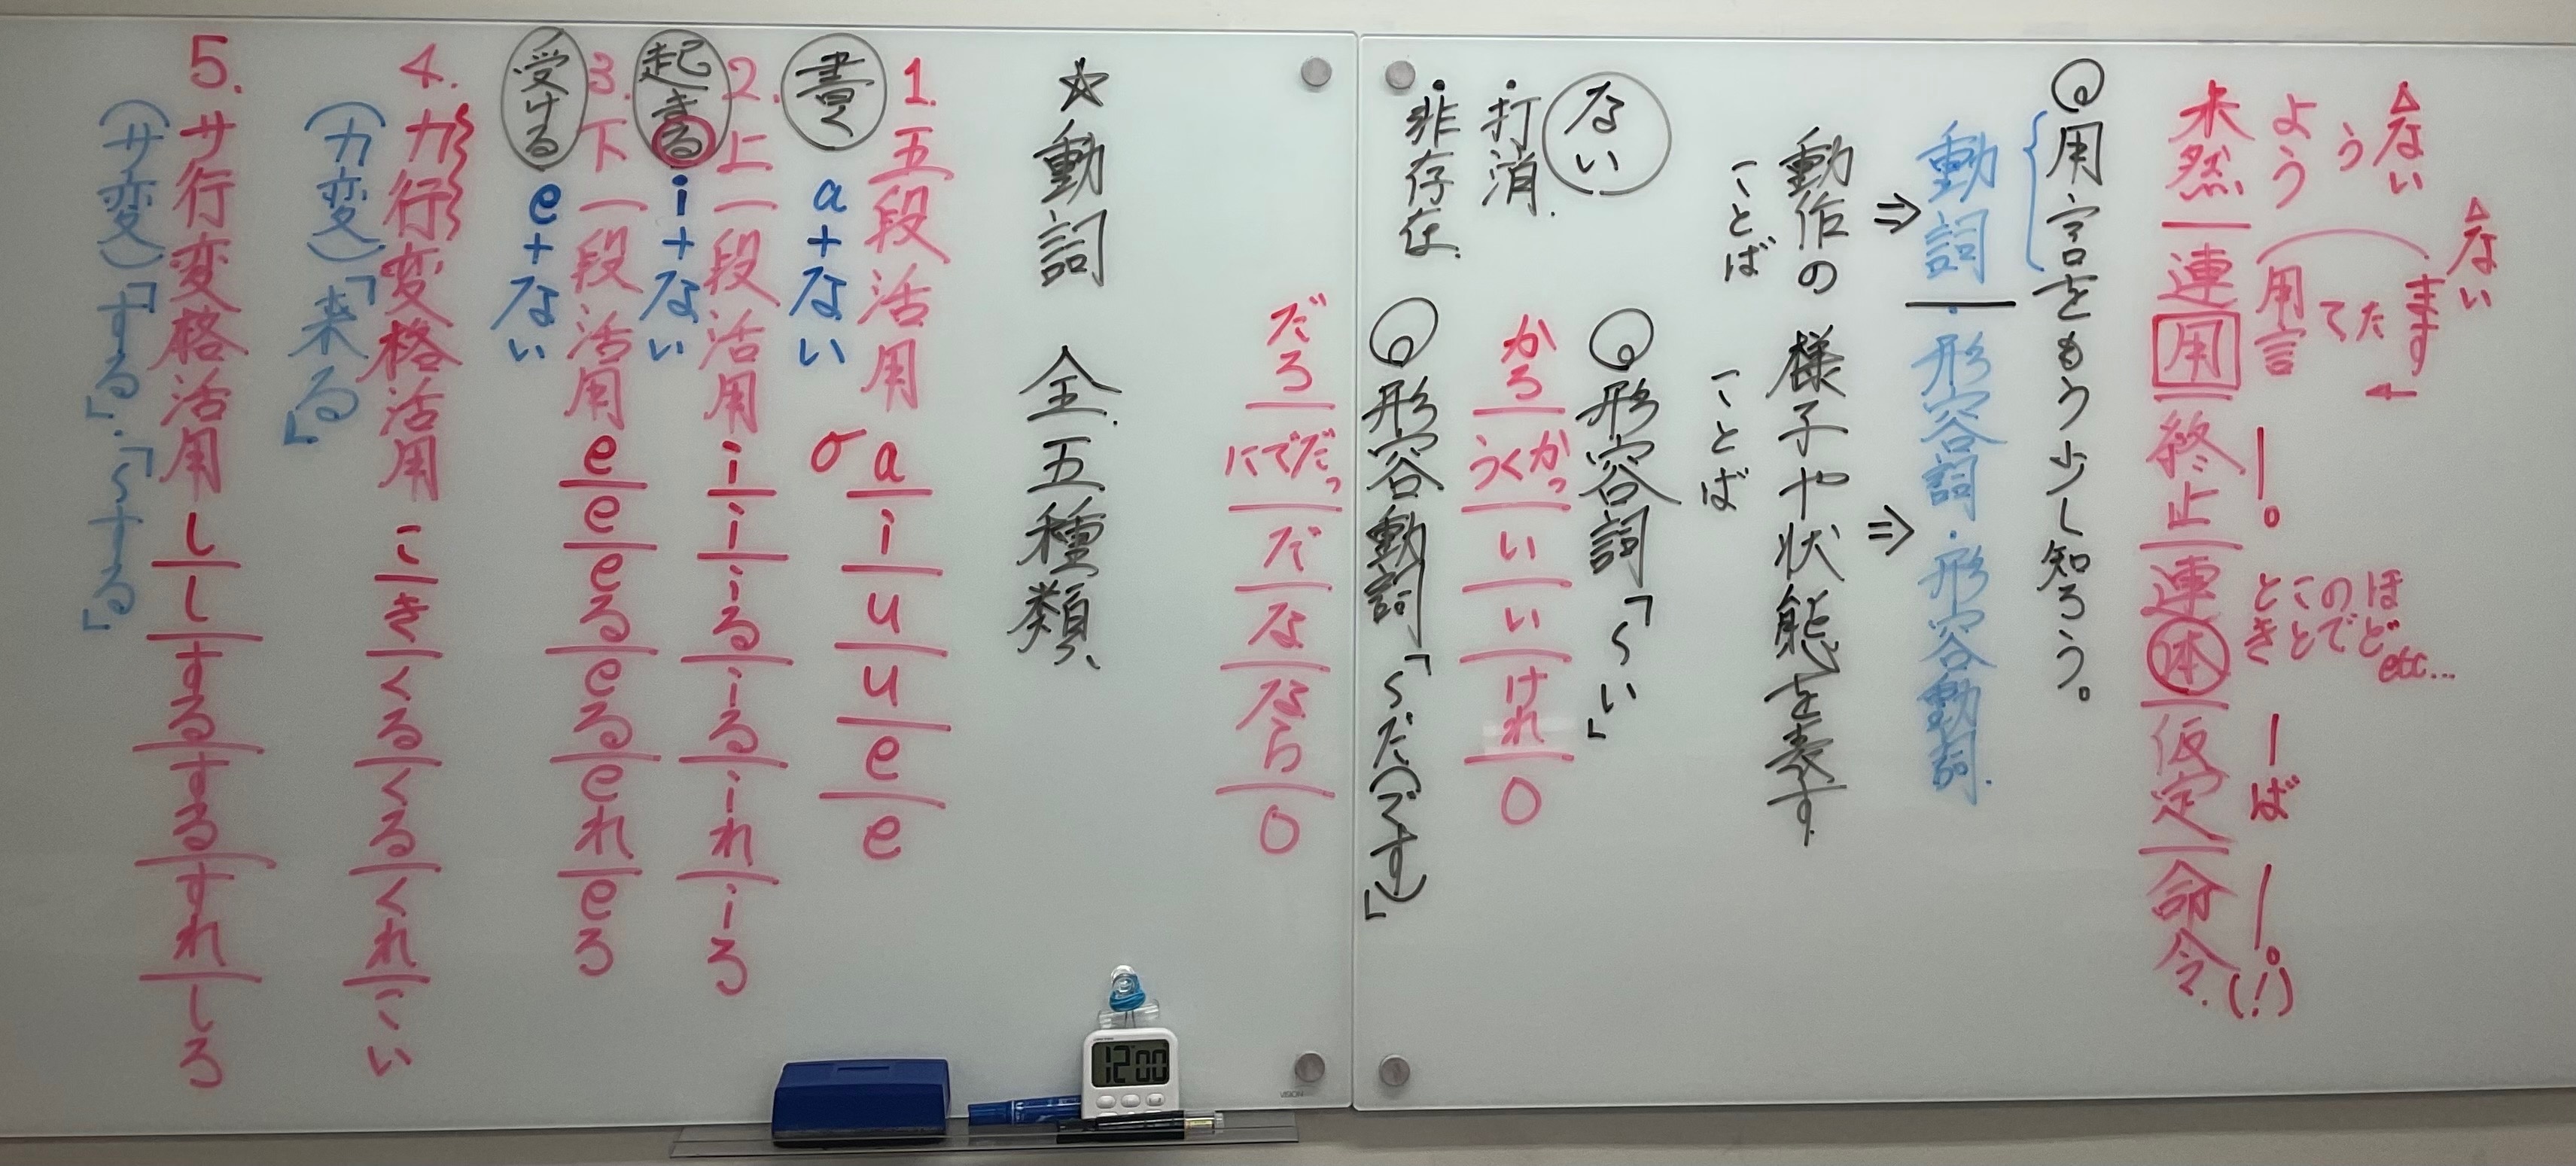 △ない
△ない
う
よう
ます
た
て
用言
未然|連用|終止|連体|仮定|命令
―。
ほど
ので
こと
とき
etc…
―ば
―。(!)
◎用言をもう少し知ろう。
動詞・形容詞・形容動詞.
⇒
⇒
動作の
ことば
様子や状態を表す
ことば
◎形容詞「~い」
かろ|かっ く う|い|い|けれ|0
ない
・打消.
・非存在.
◎形容動詞「~だ(です)」
だろ|だっ で に|だ|な|なら|0
☆動詞 全五種類、
1.五段活用
a|i|u|u|e|e
o
書く
a+ない
2.上一段活用
i|i|iる|iる|iれ|iろ
起きる
i+ない
3.下一段活用
e|e|eる|eる|eれ|eろ
受ける
e+ない
4.カ行変格活用
こ|き|くる|くる|くれ|こい
(カ変)「来る」
5.サ行変格活用
し|し|する|する|すれ|しろ
(サ変)「する」・「~する」
12:00
VISION